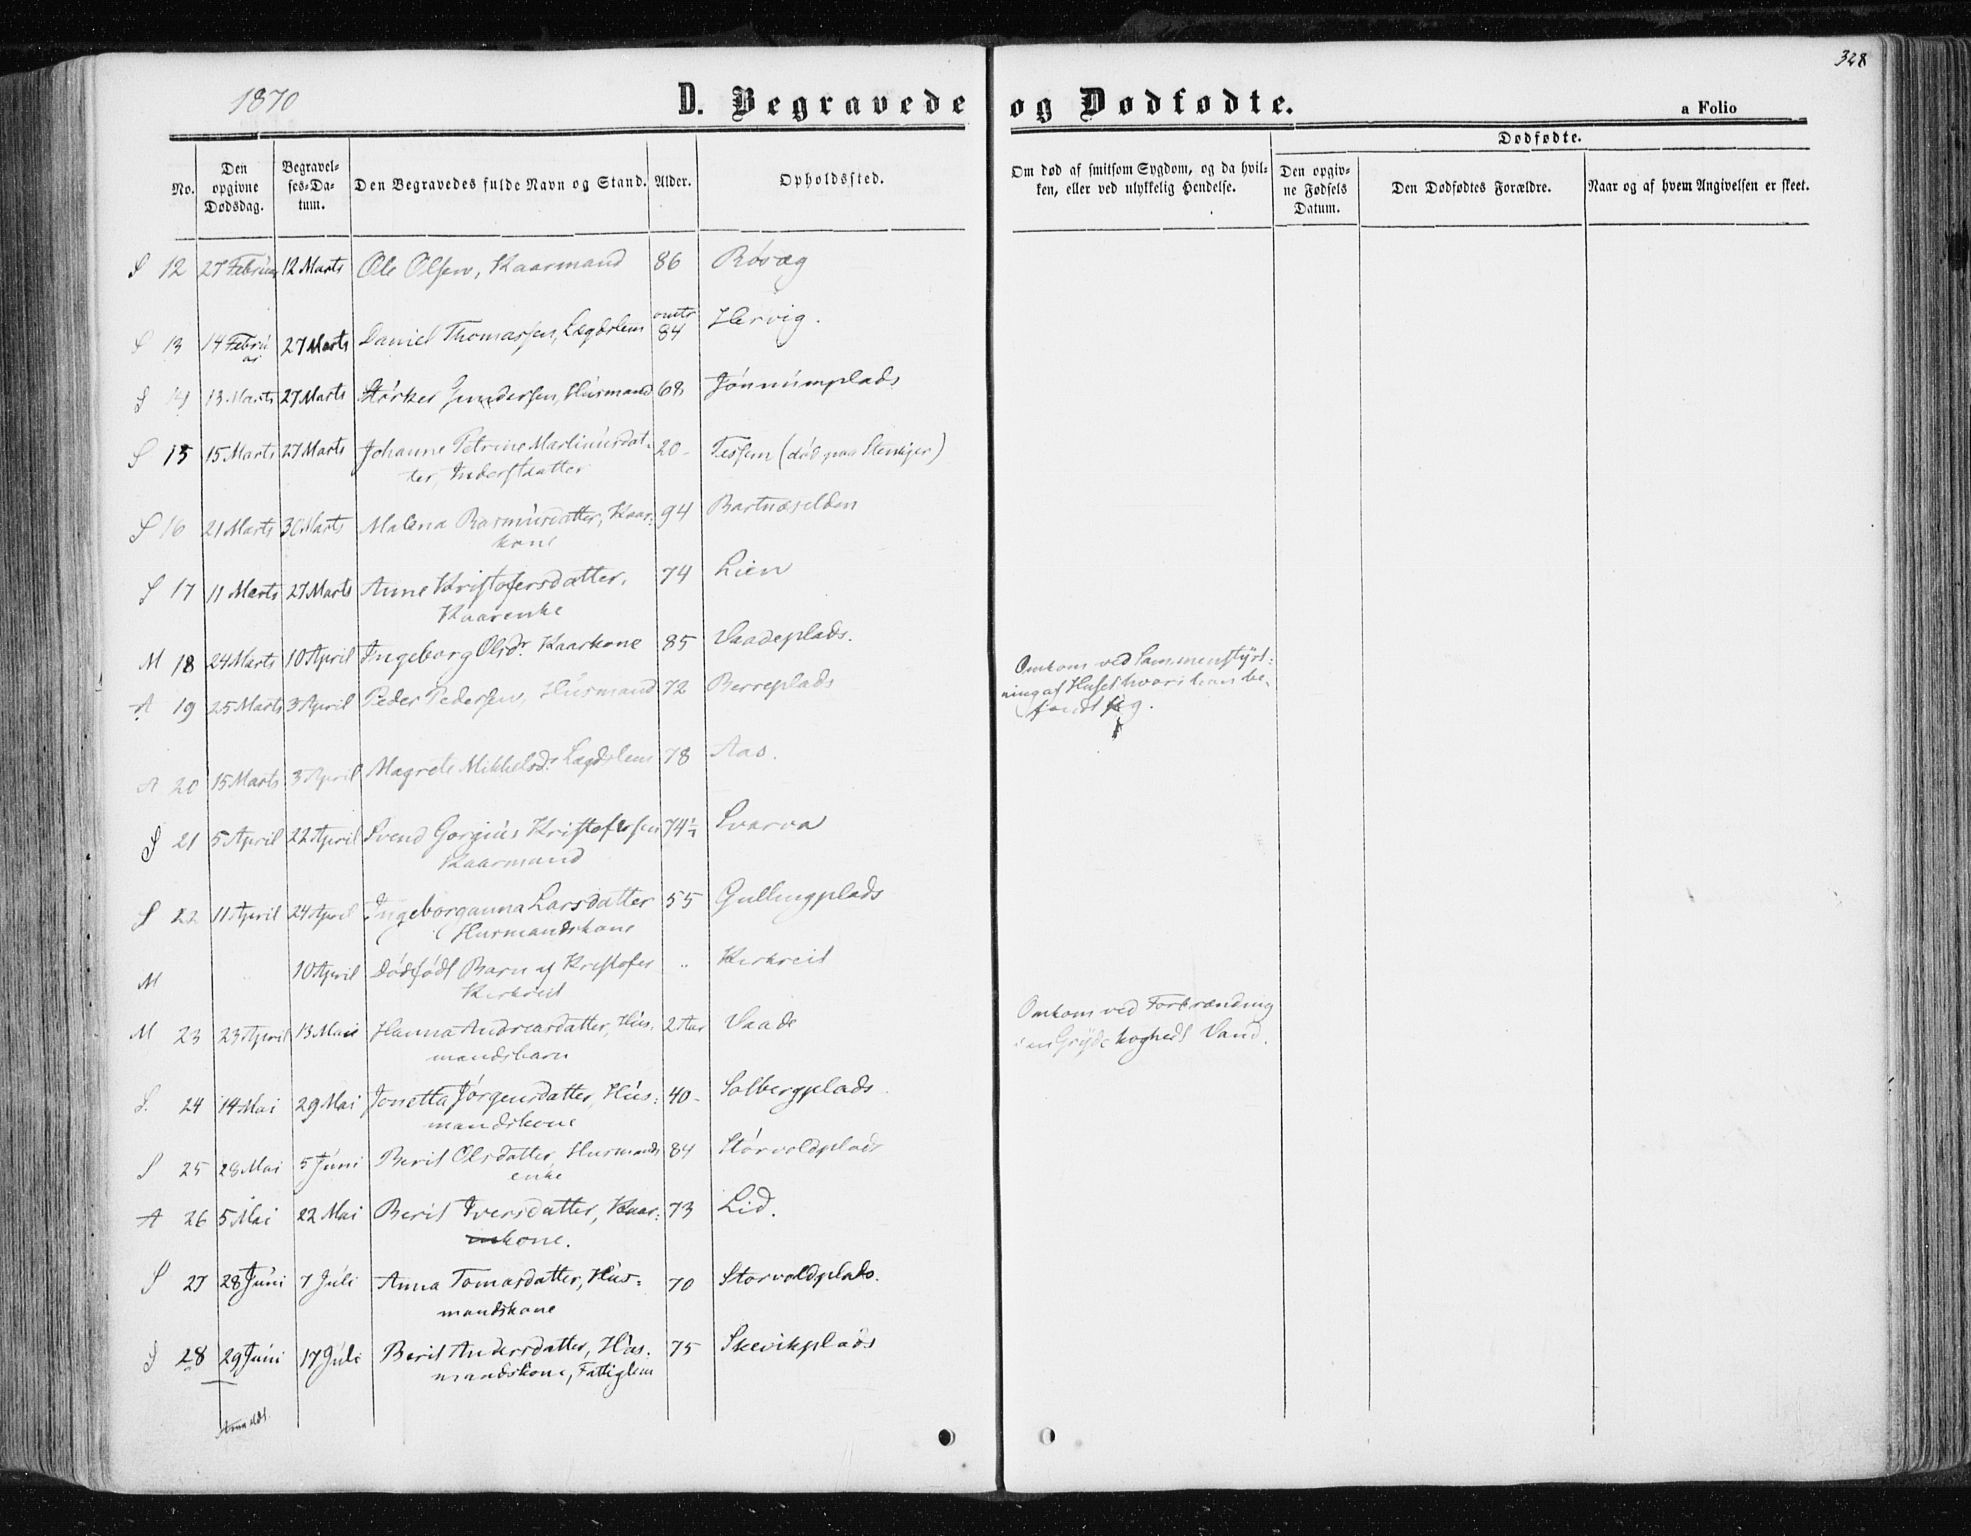 328
1870
D. Begravede og Dødfødte.
a Folio
No.
Den opgivne Dødsdag.
Begravel-ses-Da-tum.
Den Begravedes fulde Navn og Stand.
Alder.
Opholdssted.
Om død af smitsom Sygdom, og da hvil-
ken, eller ved ulykkelig Hendelse.
Dødfødte.
Den opgiv-ne Fødsels Datum.
Den Dødfødtes Forældre.
Naar og af hvem Angivelsen er skeet.
S 12 27 Februar 12 Marts Ole Olsen, Kaarmand 86 Røvæg
S 13 14 Februar 27 Marts Daniel Thomassen, Lægdslem 84 Hervig.
S 14 13 Marts 27 Marts Størker Gundersen, Husmand 68 Jønnumplads
S 15 15 Marts 27 Marts Johanne Petrine Martinusdat-
ter, Inderstdatter 20 - Tessem (død paa Stenkjer)
S 16 21 Marts 30 Marts Malena Rasmusdatter, Kaar-
kone 94 Bartnæselden
S 17 11 Marts 27 Marts Anne Kristofersdatter,
Kaarenke 74 Lien
M 18 24 Marts 10 April Ingeborg Olsdr. Kaarkone 85 Vaadeplads.
A 19 25 Marts 3 April Peder Pedersen, Husmand 72 Berreplads
Omkom ved Sammenstyrt-
ning af Huset hvori han be-
fandt sig.
A 20 15 Marts 3 April Magrete Mikkelsd. Lægdslem 78 Aas.
S 21 5 April 22 April Svend Gorgius Kristofersen
Kaarmand 74½ Svarva
S 22 11 April 24 April Ingeborganna Larsdatter
Husmandskone 55 Gullingplads
M 10 April Dødfødt Barn af Kristofer
Kirkreit .. Kirkreit
M 23 23 April 13 Mai Hanna Andreasdatter, Hus-
mandsbarn 2 Aar Vaade
Omkom ved Forbrænding
i en Gryde koghedt Vand.
S. 24 14 Mai 29 Mai Jonetta Jørgensdatter, Hus-
mandskone 40 - Solbergplads
S 25 28 Mai 5 Juni Berit Olsdatter, Husmands
enke 84 Storvoldplads
A 26 5 Mai 22 Mai Berit Iversdatter, Kaar-
kone. 73 Lid.
S 27 28 Juni 7 Juli Anna Tomasdatter, Hus-
mandskone 70 Storvoldplads.
S 28 29 Juni 17 Juli Berit Andersdatter, Hus-
mandskone, Fattiglem 75 Skevikplads